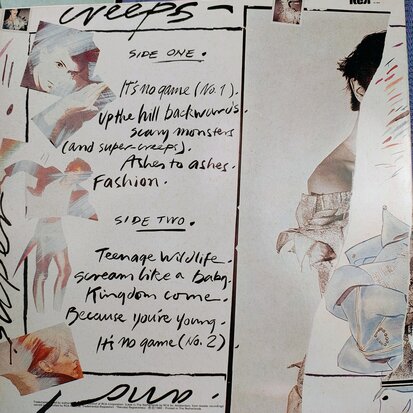 creeps -
SIDE ONE .
It's no game (No. 1) .
Up the hill backwards .
Scary monsters
(and super-creeps) .
Ashes to ashes .
Fashion .
super
SIDE TWO .
Teenage Wildlife .
Scream like a Baby .
Kingdom come .
Because you're young .
It's no game (No. 2)